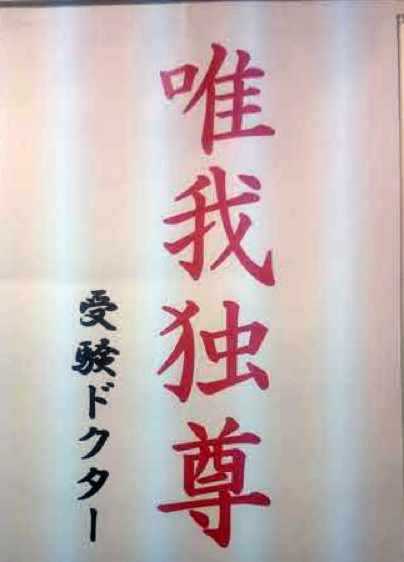 唯我独尊
受験ドクター